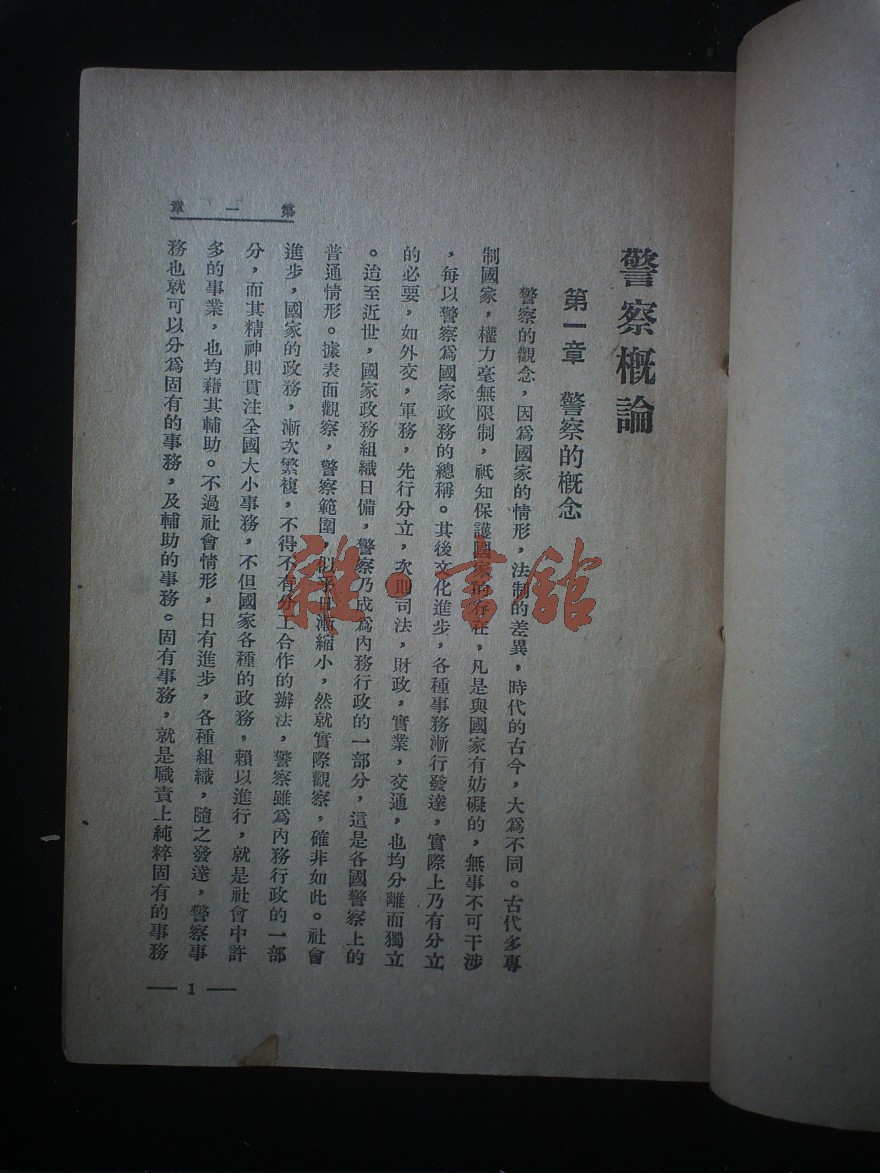 警察概論
第一章　警察的概念
警察的觀念，因爲國家的情形，法制的差異，時代的古今，大爲不同。古代多專
制國家，權力毫無限制，祇知保護國家的存在，凡是與國家有妨礙的，無事不可干涉
，每以警察爲國家政務的總稱。其後文化進步，各種事務漸行發達，實際上乃有分立
的必要，如外交，軍務，先行分立，次則司法，財政，實業，交通，也均分離而獨立
。迨至近世，國家政務組織日備，警察乃成爲內務行政的一部分，這是各國警察上的
普通情形。據表面觀察，警察範圍，似乎日漸縮小，然就實際觀察，確非如此。社會
進步，國家的政務，漸次繁複，不得不有分工合作的辦法，警察雖爲內務行政的一部
分，而其精神則貫注全國大小事務，不但國家各種的政務，賴以進行，就是社會中許
多的事業，也均藉其輔助。不過社會情形，日有進步，各種組織，隨之發達，警察事
務也就可以分爲固有的事務，及輔助的事務。固有事務，就是職責上純粹固有的事務
第一章
— 1 —
雜·書館